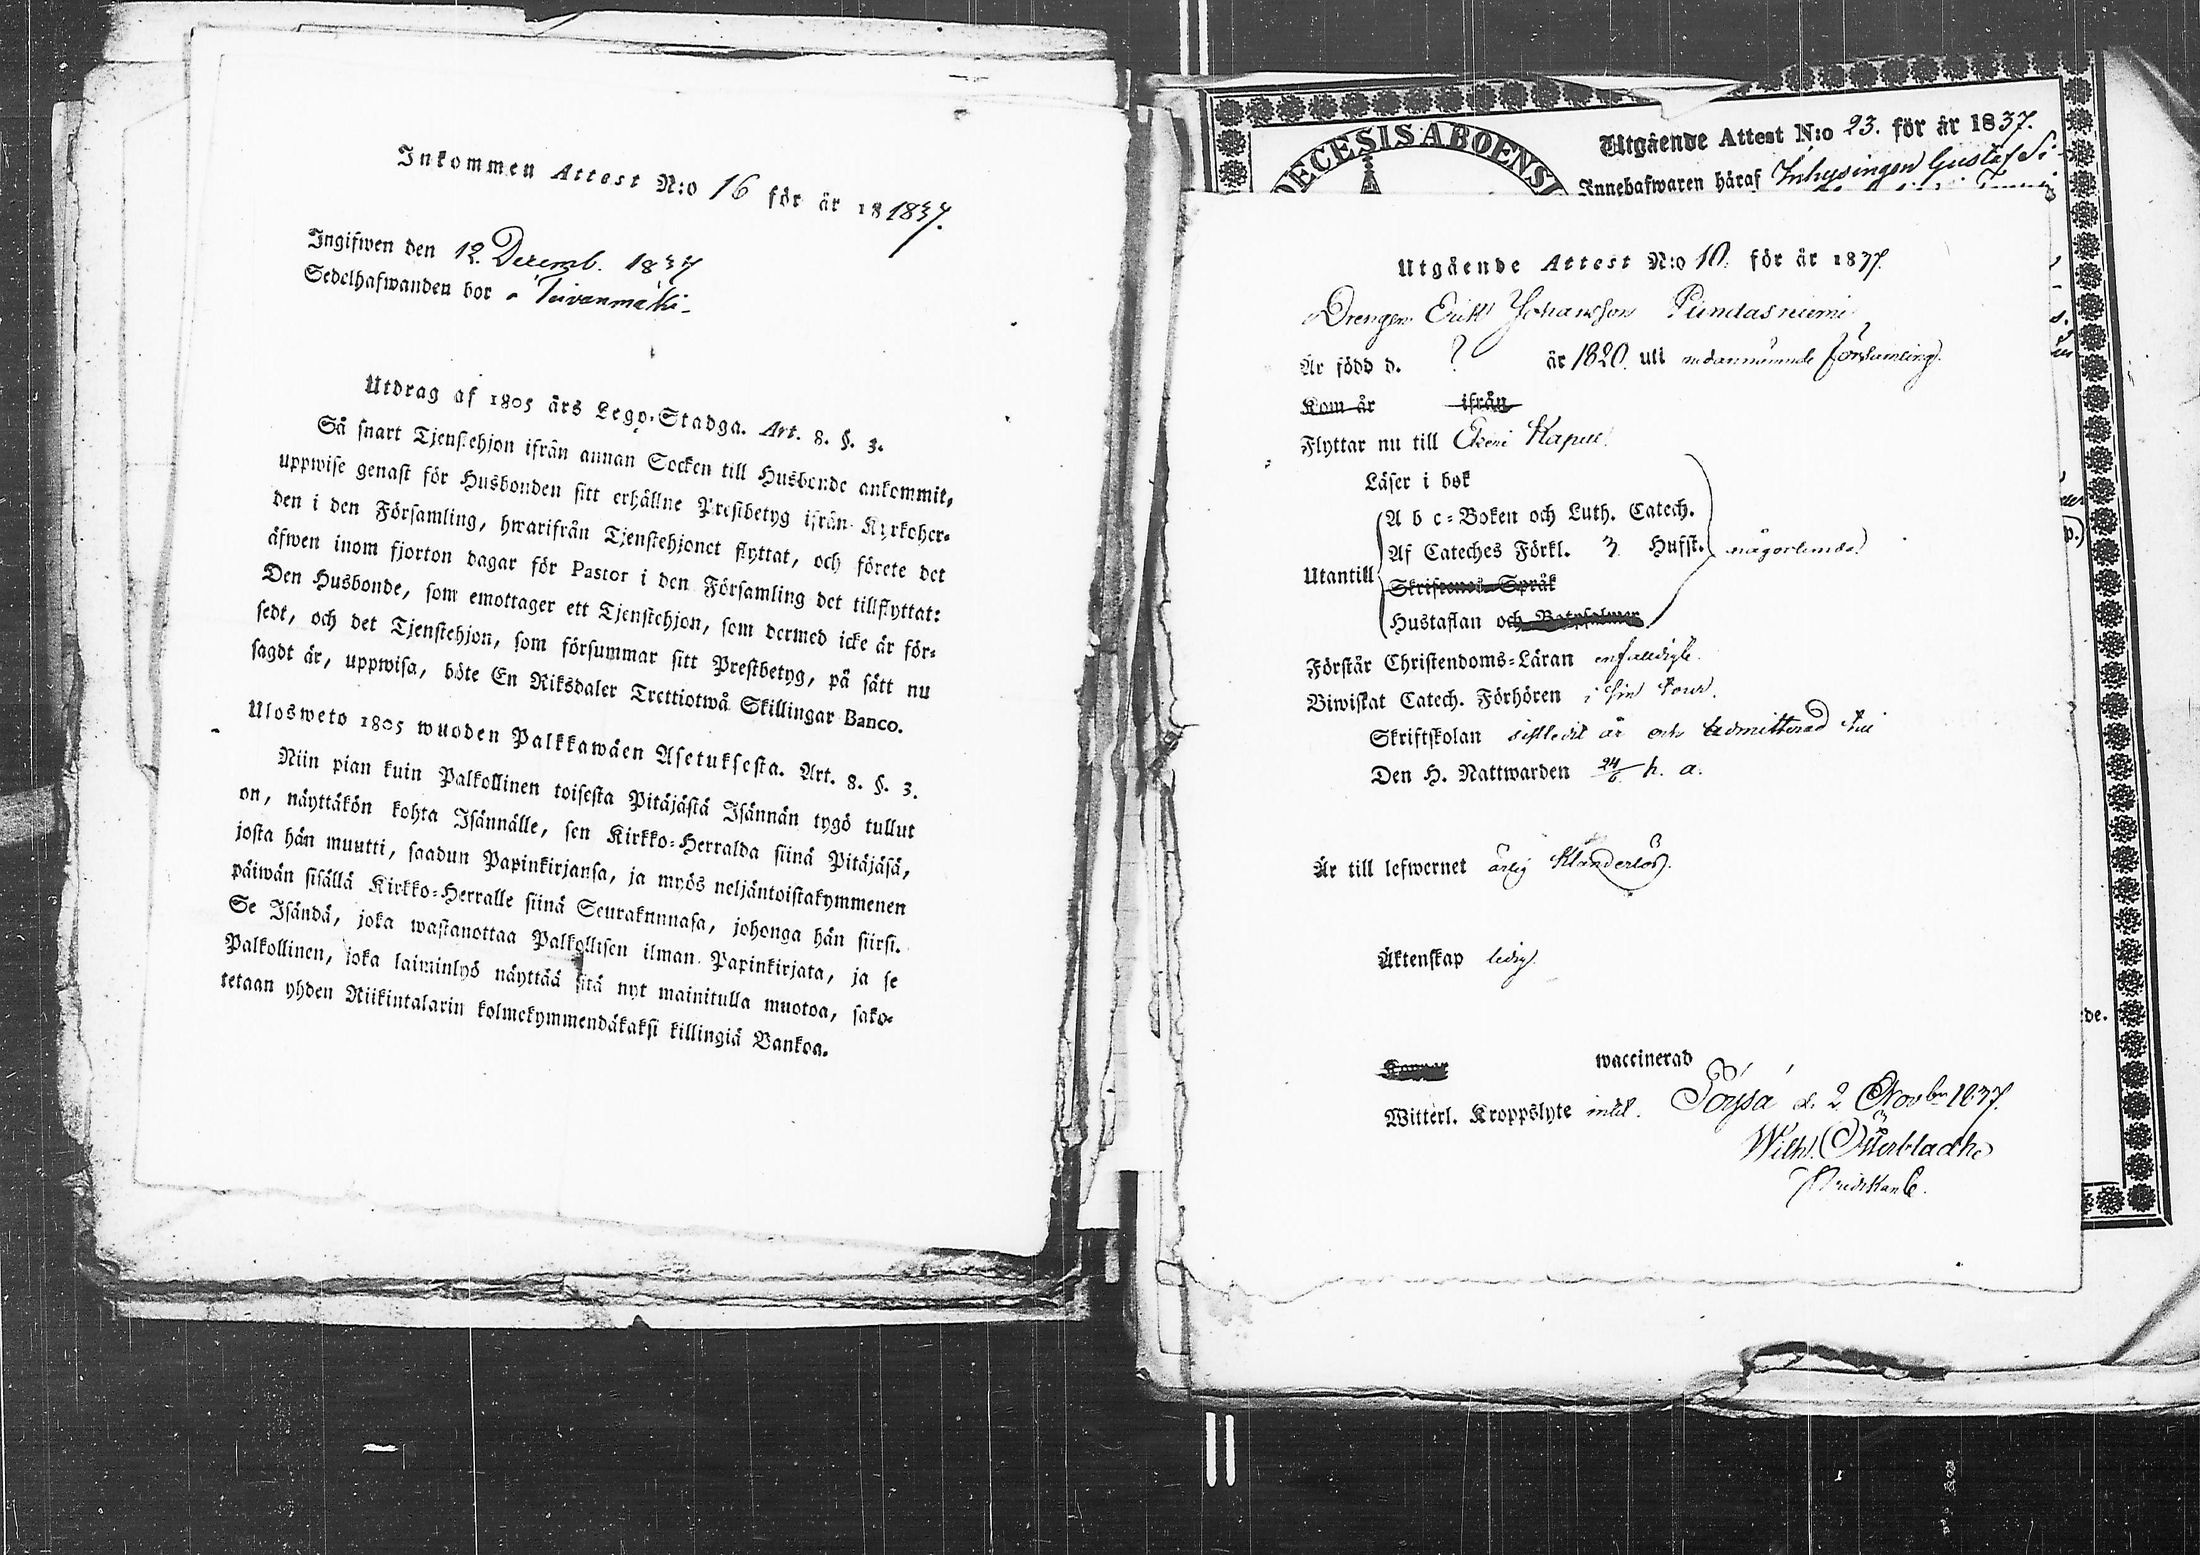 Inkommen Attest N:o 16 för år 18 1837.
Ingifwen den 12 Decemb. 1837
Sedelhafwanden bor
Utdrag af 1805 års Lego-Stadga. Art. 8. §. 3.
Så snart Tjenstehjon ifrån annan Socken till Husbonde ankommit,
uppwise genast för Husbonden sitt erhållne Prestbetyg ifrån Kyrkoher-
den i den Församling, hwarifrån Tjenstehjonet flyttat, och förete det
äfwen inom fjorton dagar för Pastor i den Församling det tillflyttat:
Den Husbonde, som emottager ett Tjenstehjon, som dermed icke är för-
sedt, och det Tjenstehjon, som försummar sitt Prestbetyg, på sätt nu
sagdt är, uppwisa, böte En Riksdaler Trettiotwå Skillingar Banco.
Ulosweto 1805 wuoden Palkkawäen Asetuksesta. Art. 8. §. 3.
Niin pian kuin Palkollinen toisesta Pitäjästä Isännän tygö tullut
on, näyttäkön kohta Isännälle, sen Kirkko-Herralda siinä Pitäjäsä,
josta hän muutti, saadun Papinkirjansa, ja myös neljäntoistakymmenen
päiwän sisällä Kirkko-Herralle siinä Seurakunnasa, johonga hän siirsi.
Se Isändä, joka wastanottaa Palkollisen ilman Papinkirjata, ja se
Palkollinen, joka laiminlyö näyttää sitä nyt mainitulla muotoa, sako-
tetaan yhden Riikintalarin kolmekymmendäkaksi killingiä Bankoa.
DECESIS ABOENSI
Utgående Attest N:o 23. för år 1837.
Innehafwaren häraf Inhysingen Gustaf Si-
Utgående Attest N:o 10. för år 1837.
Drengen Erik Johansson
Är född d. ? år 1820. uti nedannämnde församling.
Kom år ifrån
Flyttar nu till Kapell
Läser i bok
A b c-Boken och Luth. Catech.
Af Cateches Förkl. 3 Hufst. någorlunda
Utantill
Skriftenes Språk
Hustaflan och Botpsalmer
Förstår Christendoms-Läran enfaldigt.
Biwistat Catech. Förhören i sin tour.
Skriftskolan sistledit år och admitterad till
Den H. Nattwarden 24/6 h. a.
Är till lefwernet ärlig klanderlös.
Äktenskap ledig
waccinerad
Witterl. Kroppslyte intet. Töysä d. 2 Novbr 1837.
Wilh. Österbladh
Predikant.
de.